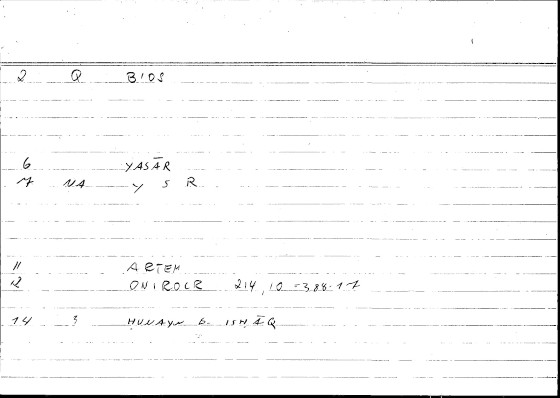 2 Q BIOS
6 YASĀR
7 NA Y S R
11 ARTEM
12 ONIROCR 214,10 = 388.17
14 3 HUNAYN b. ISHĀQ